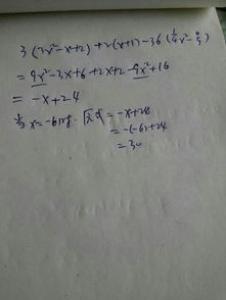 3(3x²-x+2)+2(x+1)-36(¼x²-4/9)
=9x²-3x+6+2x+2-9x²+16
=-x+24
当x=-6时, 原式=-x+24
=-(-6)+24
=30